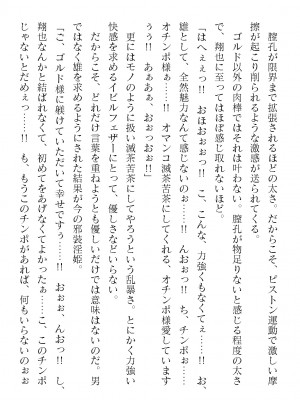 膣孔が限界まで拡張されるほどの太さ。だからこそ、ピストン運動で激しい摩
擦が起こり削られるような激感が送られてくる。
　ゴルド以外の肉棒ではそれは叶わない。膣孔が物足りないと感じる程度の太さ
で、翔也に至ってはほぼ感じ取れないほど。
「はへぇぇっ!!　おほおぉぉっ!!　こ、こんな、力強くもなくてぇ……!!　お
雄として、全然魅力なんて感じないのぉ……!!　んおぉっ!!　ち、チンポぉ…
…!!　オチンポ様ぁぁ……!!　オマンコ滅茶苦茶にしてくれる　オチンポ様愛しています
ぅ!!　ああぁぁ、おぉっおぉ!!」
　更にはモノのように扱い滅茶苦茶にしてやろうという乱暴さ。とにかく力強い
快感を求めるイビルフェザーにとって、優しさなどいらない。
　だからこそ、どれだけ言葉を重ねようとも優しいだけでは意味はないのだ。男
ではなく雄を求めるようにされた結果が今の邪装淫姫。
「こ、ゴルド様に躾けていただいて幸せですぅ……!!　おぉぉ、んおっ!!　し、
翔也なんかと結ばれなくて、初めてをあげなくてよかったぁ……こ、このチンポ
じゃないとだめぇっ……!!　も、もうこのチンポがあれば、何もいらないのぉぉ